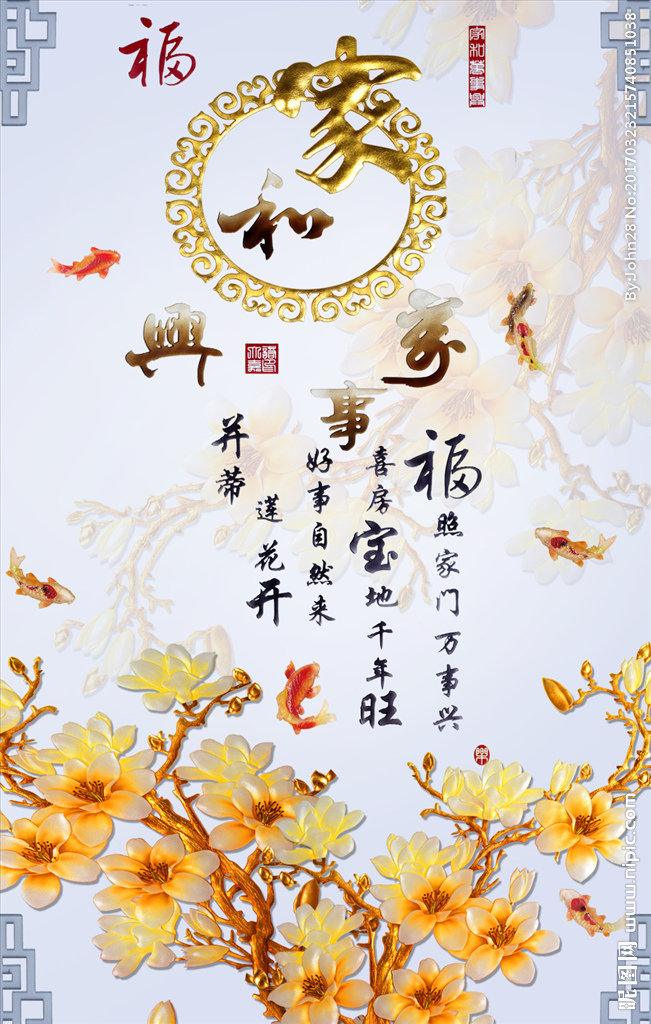 福
家和萬事興
家和
萬事興
福照家门万事兴
喜房宝地千年旺
好事自然来
莲花开
并蒂
By:John28 No:20170323215740851038
昵图网 www.nipic.com